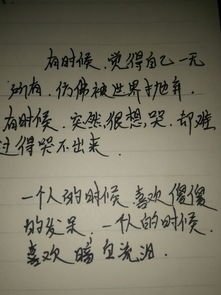 有时候.觉得自己一无
所有.仿佛被世界抛弃.
有时候.突然很想哭.却难
过得哭不出来.
一个人的时候.喜欢傻傻
的发呆.一个人的时候.
喜欢暗自流泪.